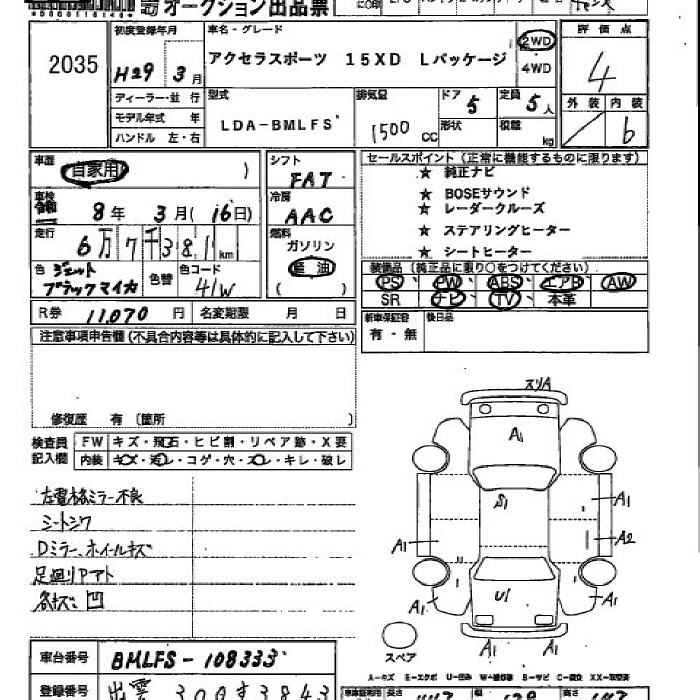 オークション出品票
*0000116148*
2035
初度登録年月
H29年 3月
車名・グレード
アクセラスポーツ 15XD Lパッケージ
2WD
4WD
評価点
4
外装 内装
/ b
ディーラー・並行
モデル年式 年
ハンドル 左・右
型式
LDA-BMLFS
排気量
1500 CC
ドア
5
形状
定員
5人
積載
kg
車歴
自家用 )
車検
令和 8年 3月(16日)
走行
6万7千381km
色 ジェットブラックマイカ
色替
色コード
41W
シフト
FAT
冷房
AAC
燃料
ガソリン
軽油
( )
R券 11,070 円
名変期限 月 日
セールスポイント (正常に機能するものに限ります)
★ 純正ナビ
★ BOSEサウンド
★ レーダークルーズ
★ ステアリングヒーター
★ シートヒーター
装備品 (純正品に限り○をつけてください)
PS PW ABS エアB AW
SR ナビ TV 本革
新車保証書
有・無
後日品
注意事項申告欄 (不具合内容等は具体的に記入して下さい)
修復歴 有 (箇所 )
検査員記入欄
FW キズ・飛石・ヒビ割・リペア跡・X要
内装 キズ・汚レ・コゲ・穴・スレ・キレ・破レ
左電格ミラー不良
シートシワ
Dミラー、ホイールキズ
足廻りアアト
各キズ 凹
スリA
A1
S1
A1
A2
A1
U1
A1
A1
A1
A1
スペア
A=キズ E=エクボ U=凹み W=補修跡 S=サビ C=腐食 XX=交換済
車台番号 BMLFS-108333
登録番号 出雲 300す3843
長さ
幅
高さ